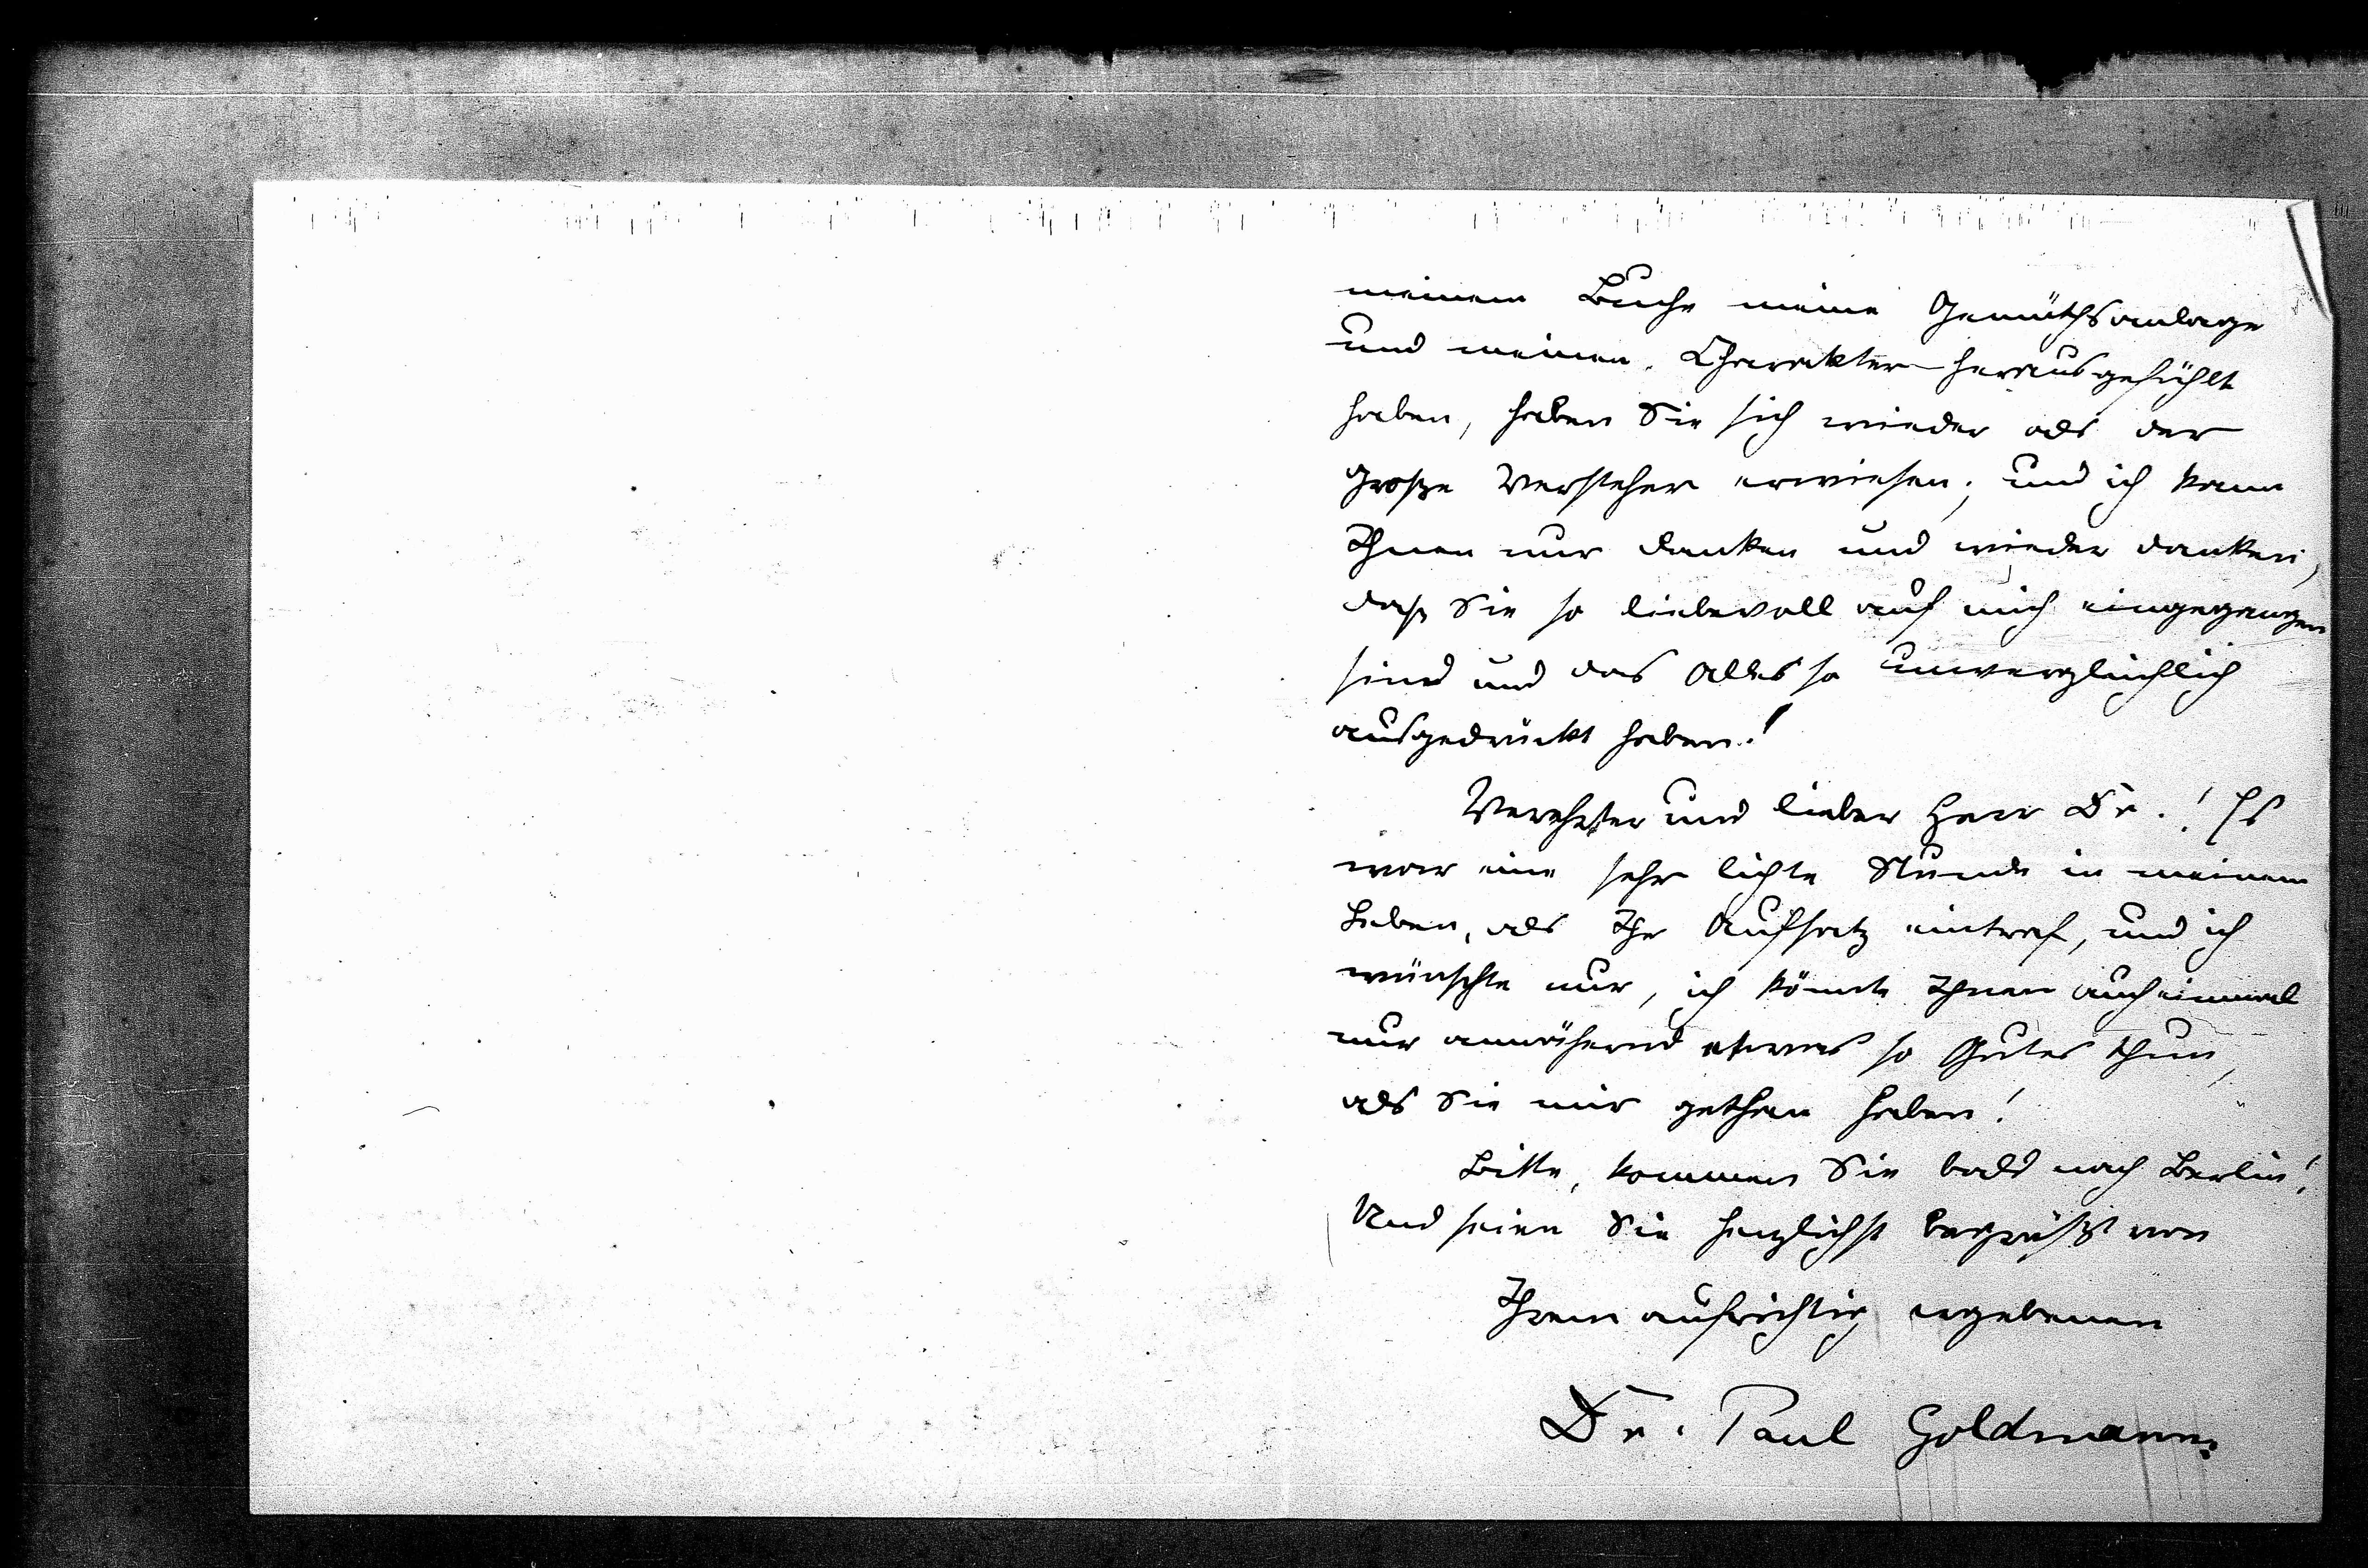 meinem Buche meine Gemüthsanlage
und meinen Charakter herausgefühlt
haben, haben Sie sich wieder als der
große Versteher erwiesen; und ich kann
Ihnen nur danken und wieder danken,
daß Sie so liebevoll auf mich eingegangen
sind und das Alles so unvergleichlich
ausgedrückt haben!
Verehrter und lieber Herr Dr.! Es
war eine sehr lichte Stunde in meinem
Leben, als Ihr Aufsatz eintraf, und ich
wünschte nur, ich könnte Ihnen auch einmal
nur annähernd etwas so Gutes thun,
als Sie mir gethan haben!
Bitte, kommen Sie bald nach Berlin!
Und seien Sie herzlichst begrüßt von
Ihrem aufrichtig ergebenen
Dr. Paul Goldmann